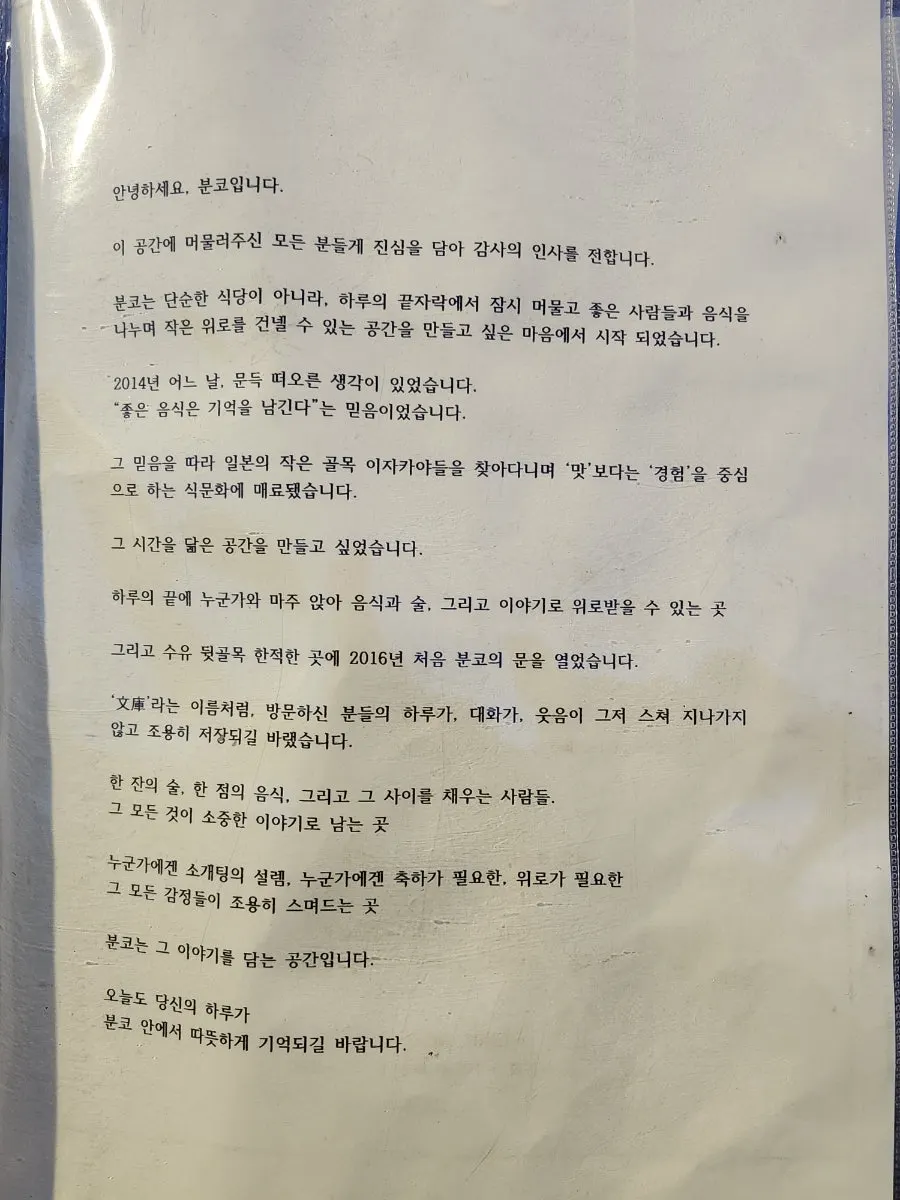 안녕하세요, 분코입니다.
이 공간에 머물러주신 모든 분들게 진심을 담아 감사의 인사를 전합니다.
분코는 단순한 식당이 아니라, 하루의 끝자락에서 잠시 머물고 좋은 사람들과 음식을
나누며 작은 위로를 건넬 수 있는 공간을 만들고 싶은 마음에서 시작 되었습니다.
2014년 어느 날, 문득 떠오른 생각이 있었습니다.
“좋은 음식은 기억을 남긴다”는 믿음이었습니다.
그 믿음을 따라 일본의 작은 골목 이자카야들을 찾아다니며 ‘맛’보다는 ‘경험’을 중심
으로 하는 식문화에 매료됐습니다.
그 시간을 닮은 공간을 만들고 싶었습니다.
하루의 끝에 누군가와 마주 앉아 음식과 술, 그리고 이야기로 위로받을 수 있는 곳
그리고 수유 뒷골목 한적한 곳에 2016년 처음 분코의 문을 열었습니다.
‘文庫’라는 이름처럼, 방문하신 분들의 하루가, 대화가, 웃음이 그저 스쳐 지나가지
않고 조용히 저장되길 바랬습니다.
한 잔의 술, 한 점의 음식, 그리고 그 사이를 채우는 사람들.
그 모든 것이 소중한 이야기로 남는 곳
누군가에겐 소개팅의 설렘, 누군가에겐 축하가 필요한, 위로가 필요한
그 모든 감정들이 조용히 스며드는 곳
분코는 그 이야기를 담는 공간입니다.
오늘도 당신의 하루가
분코 안에서 따뜻하게 기억되길 바랍니다.